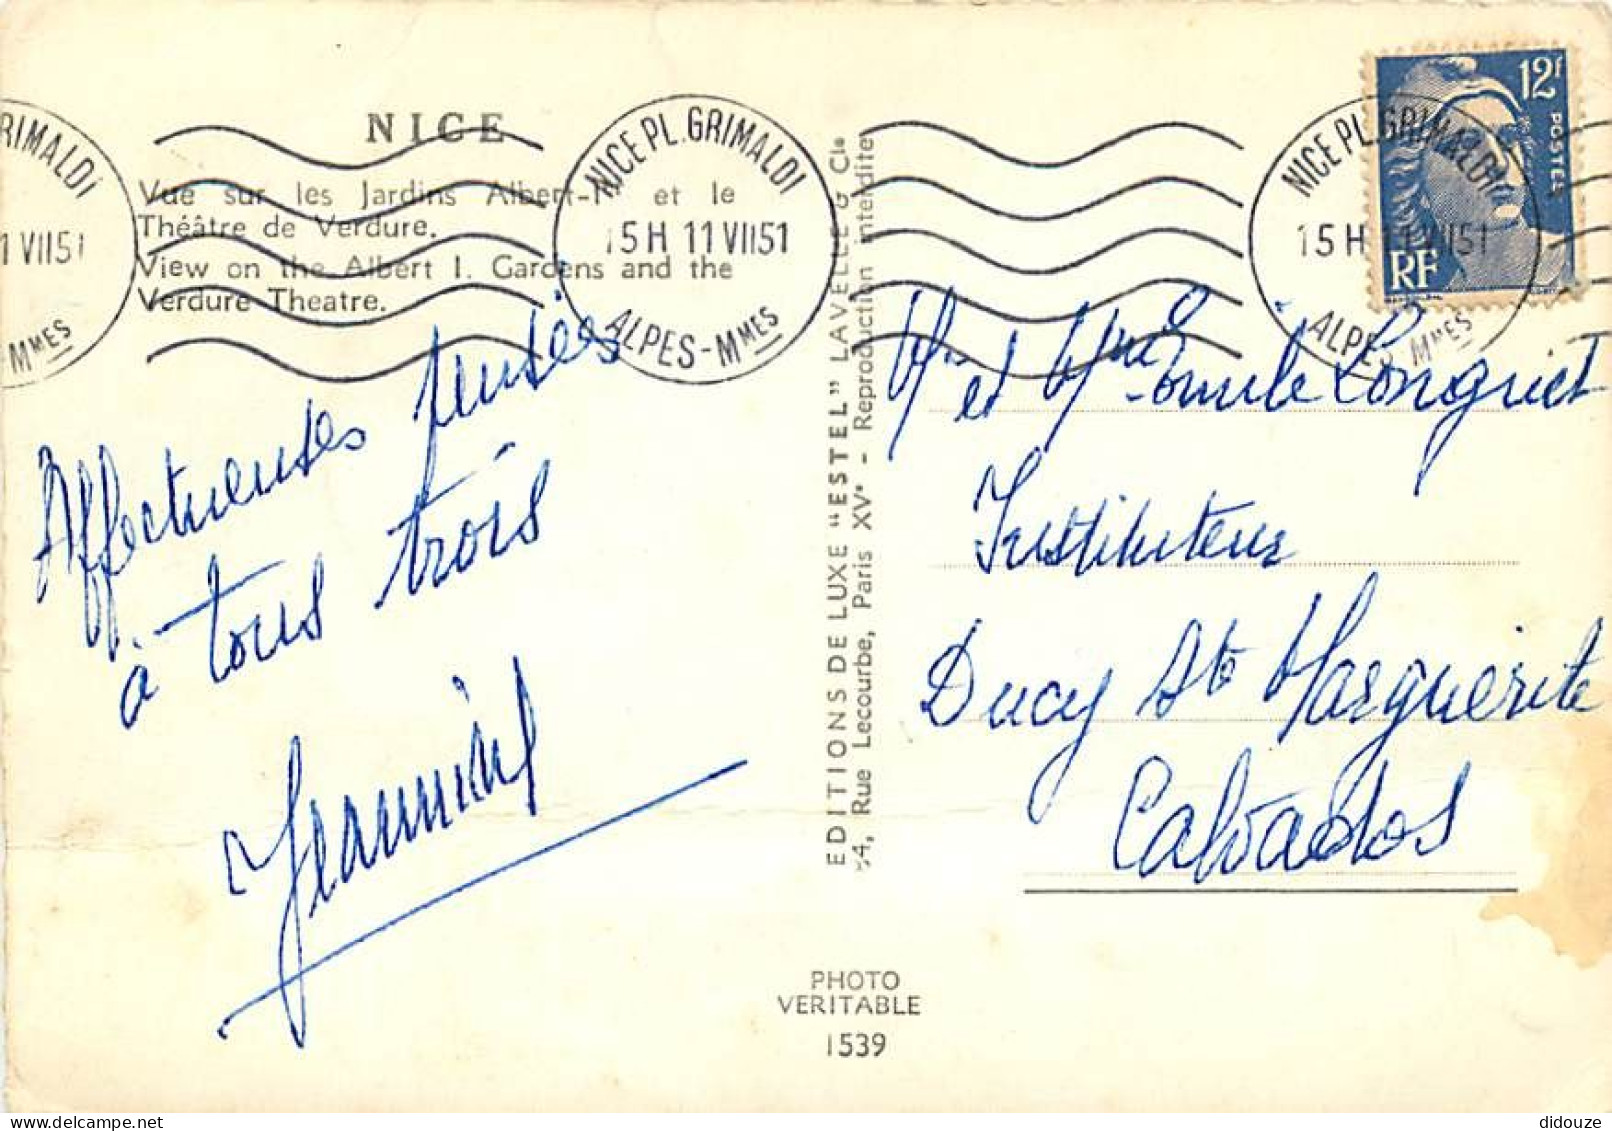 NICE
Vue sur les Jardins Albert-Ier et le
Théâtre de Verdure.
View on the Albert I. Gardens and the
Verdure Theatre.
RIMALDI
1 VII51
MMES
NICE PL. GRIMALDI
15H 11 VII51
ALPES-MMES
NICE PL. GRIMALDI
15H 11 VII51
ALPES-MMES
12f
POSTES
RF
Affectueuses pensées
à tous trois
EDITIONS DE LUXE "ESTEL" LAVELLE & Cie
Rue Lecourbe, Paris XVe - Reproduction interdite
Mr et Mme Emile Longuet
Instituteur
Ducy Ste Marguerite
Calvados
PHOTO
VERITABLE
1539
didouze